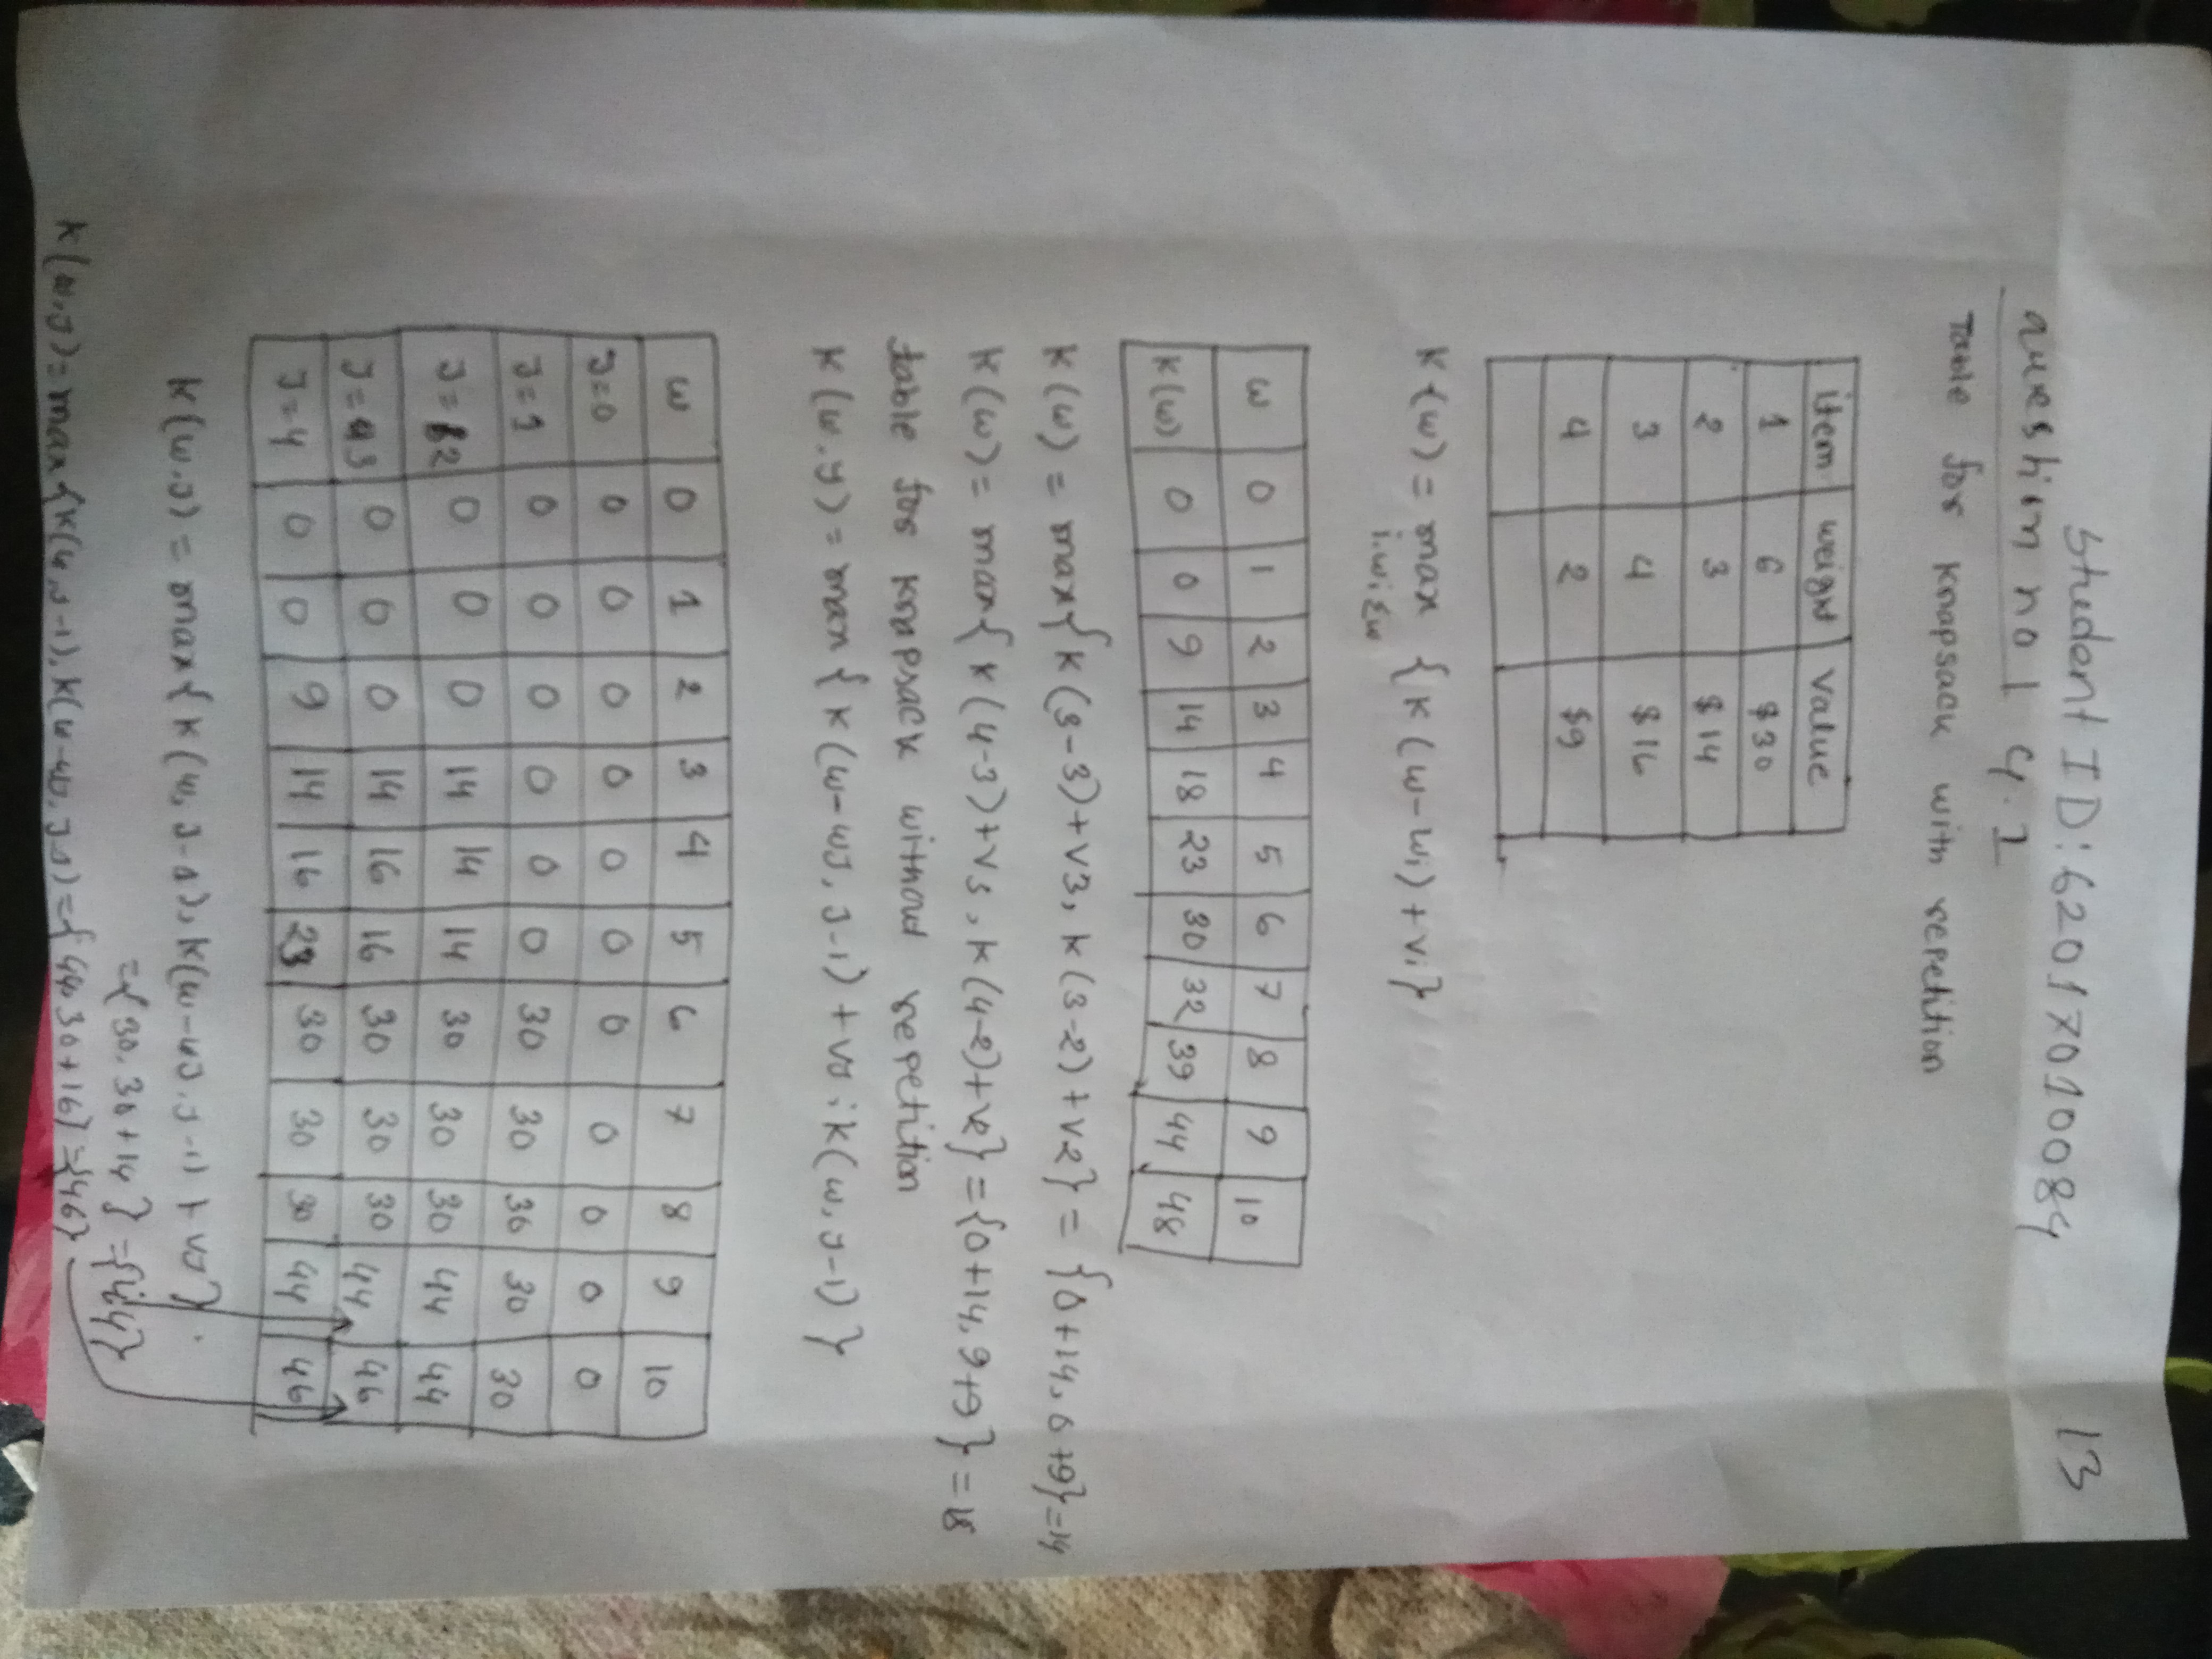 Student ID: 62017010084 13
question no 1 4.1
Table for knapsack with repetition
item weight value
1 6 $30
2 3 $14
3 4 $16
4 2 $9
K(w) = max {K(w-wi)+vi}
i.wi≤w
w 0 1 2 3 4 5 6 7 8 9 10
K(w) 0 0 9 14 18 23 30 32 39 44 48
K(w) = max{K(3-3)+v3, K(3-2)+v2} = {0+14, 0+9}=14
K(w) = max{K(4-3)+v3, K(4-2)+v2} = {0+14, 9+9} = 18
table for knapsack without repetition
K(w.y) = max{K(w-wJ, J-1)+vJ; K(w, J-1)}
w 0 1 2 3 4 5 6 7 8 9 10
J=0 0 0 0 0 0 0 0 0 0 0 0
J=1 0 0 0 0 0 0 30 30 30 30 30
J=2 0 0 0 14 14 14 30 30 30 44 44
J=3 0 0 0 14 16 16 30 30 30 44 46
J=4 0 0 9 14 16 23 30 30 30 44 46
K(w.J) = max{K(w, J-1), K(w-wJ.J-1)+vJ}
={30, 30+14} ={44}
K(w,J)=max{K(w,J-1), K(w-w, J-1)={44 30+16}={46}